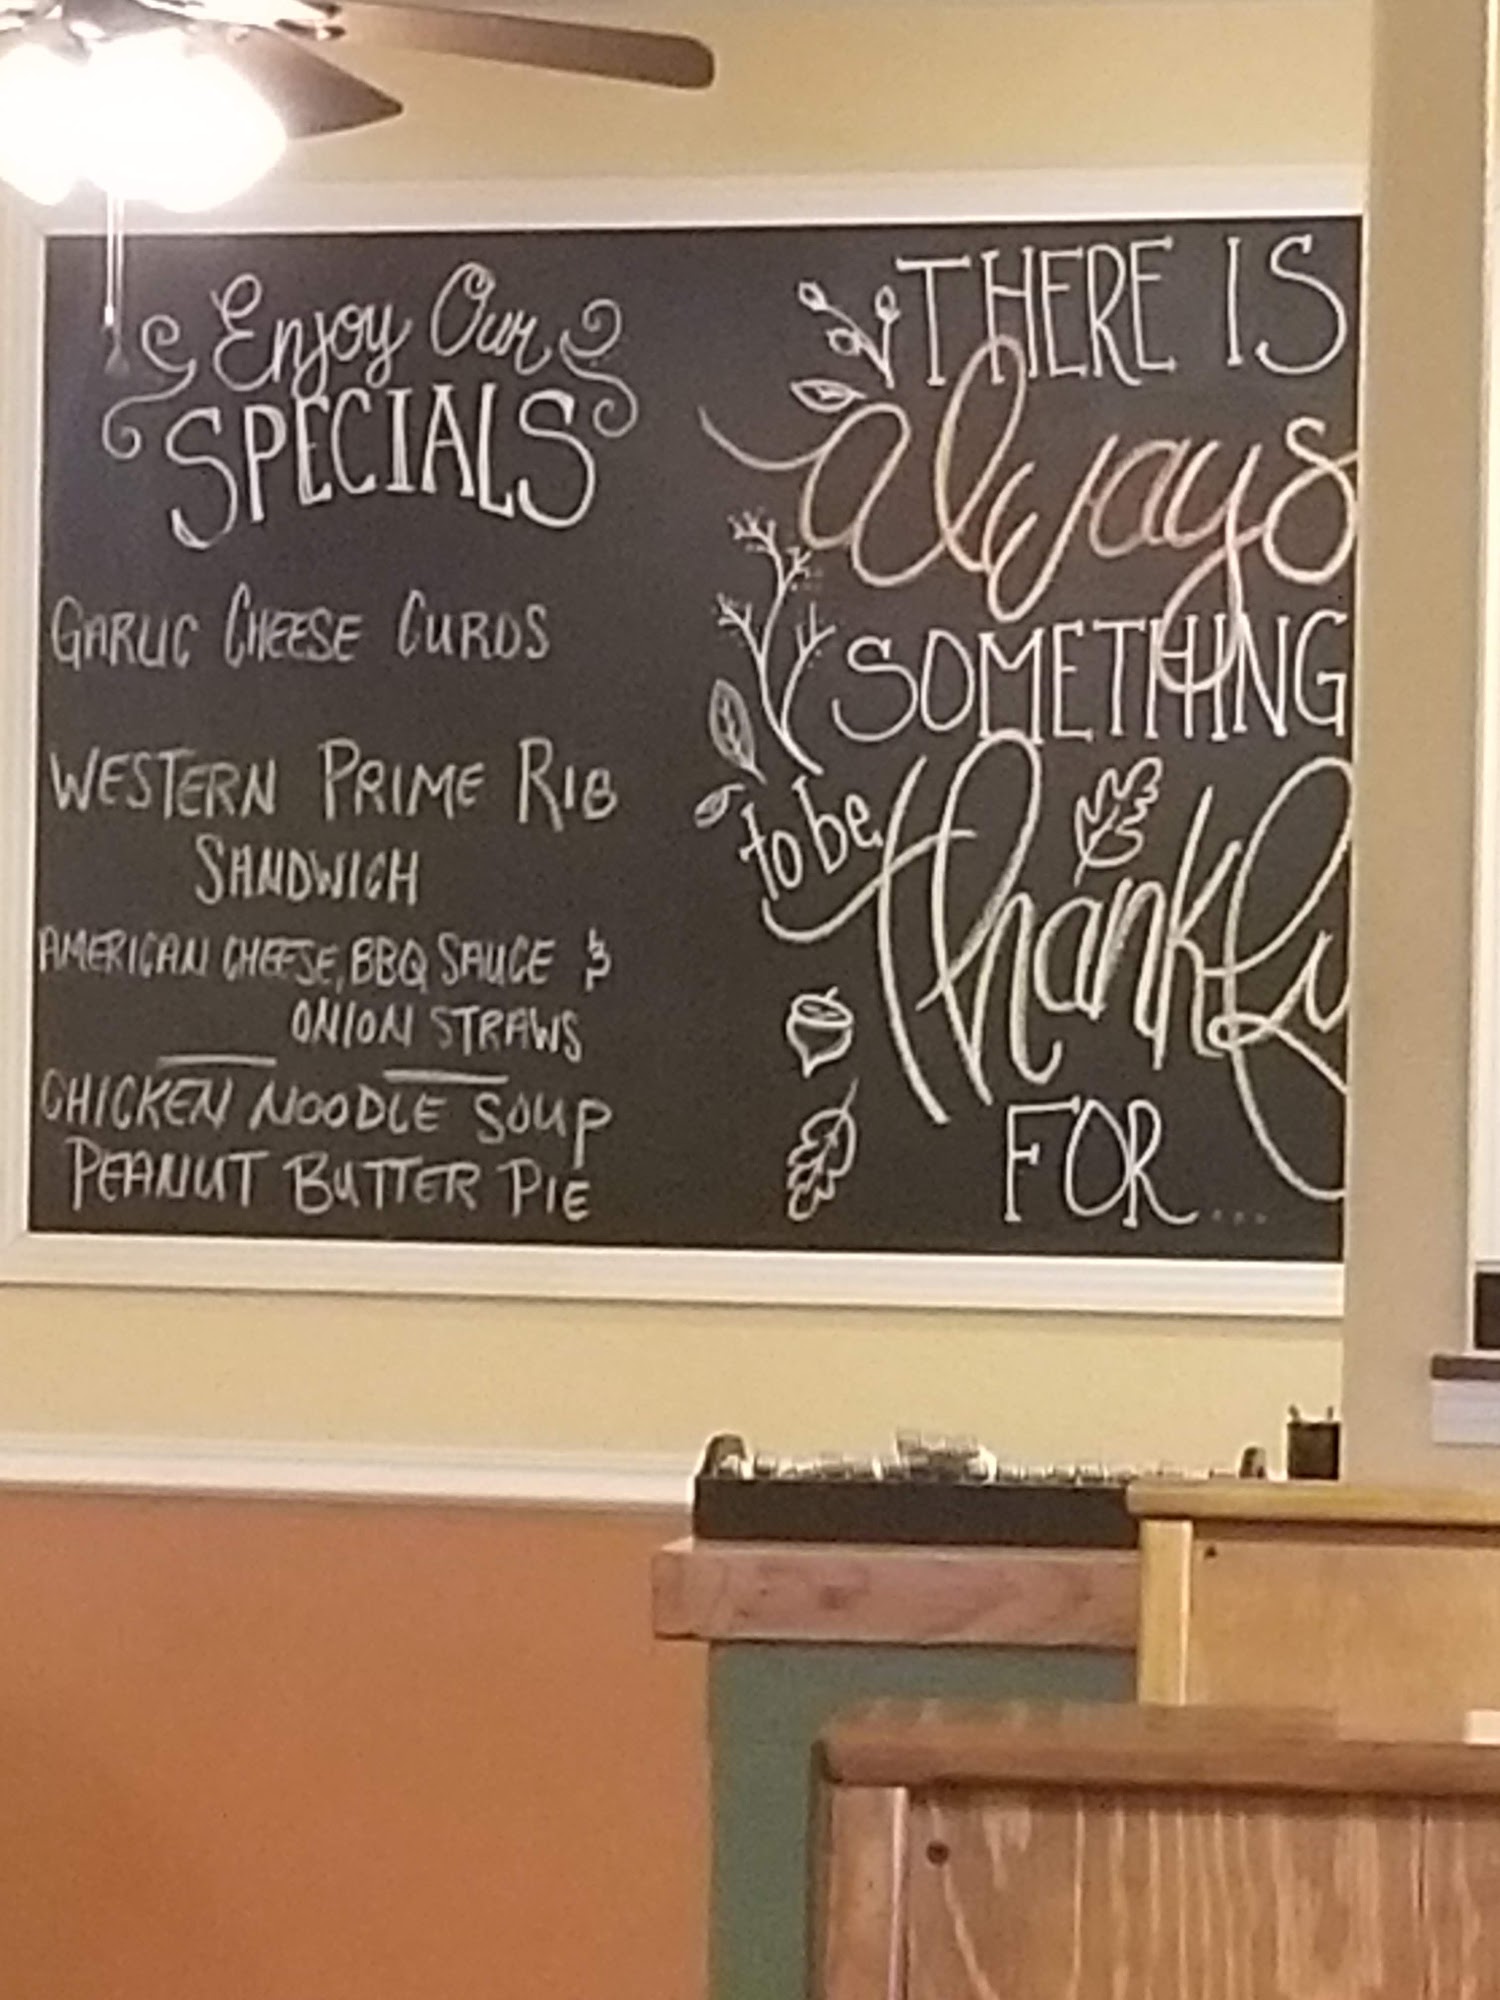 Enjoy Our
SPECIALS
GARLIC CHEESE CURDS
WESTERN PRIME RIB
SANDWICH
AMERICAN CHEESE, BBQ SAUCE &
ONION STRAWS
CHICKEN NOODLE SOUP
PEANUT BUTTER PIE
THERE IS
always
SOMETHING
to be
thankfu
FOR...